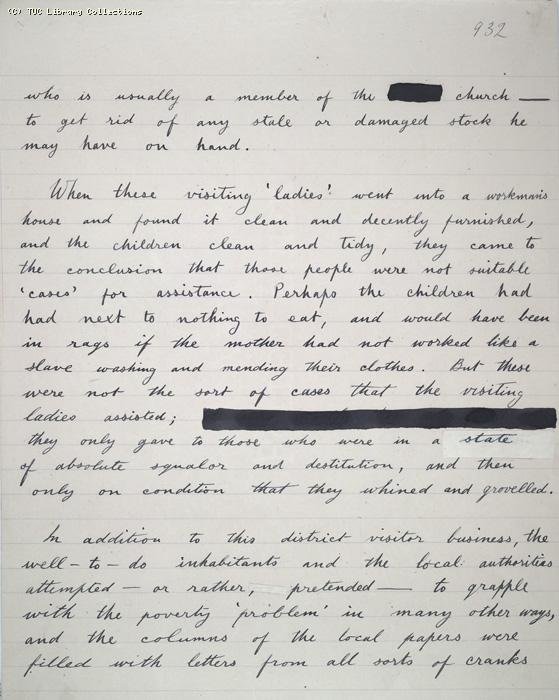 (C) TUC Library Collections
932
who is usually a member of the church —
to get rid of any stale or damaged stock he
may have on hand.
When these visiting 'ladies' went into a workman's
house and found it clean and decently furnished,
and the children clean and tidy, they came to
the conclusion that those people were not suitable
'cases' for assistance. Perhaps the children had
had next to nothing to eat, and would have been
in rags if the mother had not worked like a
slave washing and mending their clothes. But these
were not the sort of cases that the visiting
ladies assisted;
they only gave to those who were in a state
of absolute squalor and destitution, and then
only on condition that they whined and grovelled.
In addition to this district visitor business, the
well-to-do inhabitants and the local authorities
attempted — or rather, pretended — to grapple
with the poverty 'problem' in many other ways,
and the columns of the local papers were
filled with letters from all sorts of cranks